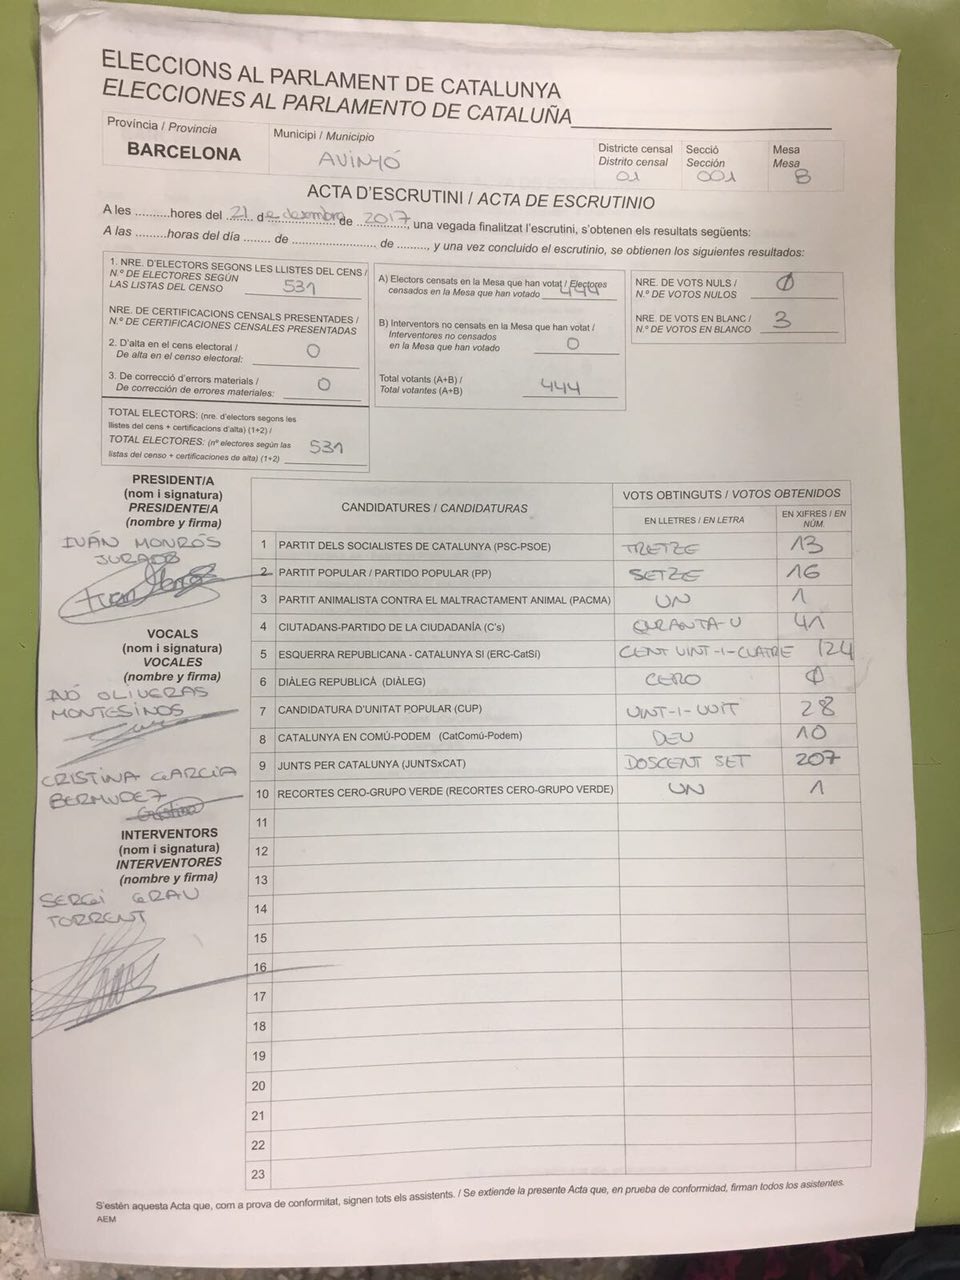 ELECCIONS AL PARLAMENT DE CATALUNYA
ELECCIONES AL PARLAMENTO DE CATALUÑA
Província / Provincia
BARCELONA
Municipi / Municipio
AVINYÓ
Districte censal
Distrito censal
01
Secció
Sección
001
Mesa
Mesa
B
ACTA D'ESCRUTINI / ACTA DE ESCRUTINIO
A les ..........hores del 21 de desembre de 2017, una vegada finalitzat l'escrutini, s'obtenen els resultats següents:
A las .........horas del día ........ de ......................... de ........., y una vez concluido el escrutinio, se obtienen los siguientes resultados:
1. NRE. D'ELECTORS SEGONS LES LLISTES DEL CENS /
N.º DE ELECTORES SEGÚN
LAS LISTAS DEL CENSO 531
NRE. DE CERTIFICACIONS CENSALS PRESENTADES /
N.º DE CERTIFICACIONES CENSALES PRESENTADAS
2. D'alta en el cens electoral /
De alta en el censo electoral: 0
3. De correcció d'errors materials /
De corrección de errores materiales: 0
TOTAL ELECTORS: (nre. d'electors segons les
llistes del cens + certificacions d'alta) (1+2) /
TOTAL ELECTORES: (nº electores según las
listas del censo + certificaciones de alta) (1+2) 531
A) Electors censats en la Mesa que han votat / Electores
censados en la Mesa que han votado 444
B) Interventors no censats en la Mesa que han votat /
Interventores no censados
en la Mesa que han votado 0
Total votants (A+B) /
Total votantes (A+B) 444
NRE. DE VOTS NULS /
N.º DE VOTOS NULOS 0
NRE. DE VOTS EN BLANC /
N.º DE VOTOS EN BLANCO 3
PRESIDENT/A
(nom i signatura)
PRESIDENTE/A
(nombre y firma)
IVÁN MONRÓS
JURADO
VOCALS
(nom i signatura)
VOCALES
(nombre y firma)
OLIVERAS
MONTESINOS
CRISTINA GARCIA
BERMUDEZ
Cristina
INTERVENTORS
(nom i signatura)
INTERVENTORES
(nombre y firma)
SERGI GRAU
TORRENT
CANDIDATURES / CANDIDATURAS
VOTS OBTINGUTS / VOTOS OBTENIDOS
EN LLETRES / EN LETRA
EN XIFRES / EN
NÚM.
1 PARTIT DELS SOCIALISTES DE CATALUNYA (PSC-PSOE) TRETZE 13
2 PARTIT POPULAR / PARTIDO POPULAR (PP) SETZE 16
3 PARTIT ANIMALISTA CONTRA EL MALTRACTAMENT ANIMAL (PACMA) UN 1
4 CIUTADANS-PARTIDO DE LA CIUDADANÍA (C's) QURANTA-U 41
5 ESQUERRA REPUBLICANA - CATALUNYA SI (ERC-CatSí) CENT VINT-I-CUATRE 124
6 DIÀLEG REPUBLICÀ (DIÀLEG) CERO 0
7 CANDIDATURA D'UNITAT POPULAR (CUP) VINT-I-VUIT 28
8 CATALUNYA EN COMÚ-PODEM (CatComú-Podem) DEU 10
9 JUNTS PER CATALUNYA (JUNTSxCAT) DOSCENT SET 207
10 RECORTES CERO-GRUPO VERDE (RECORTES CERO-GRUPO VERDE) UN 1
11
12
13
14
15
16
17
18
19
20
21
22
23
S'estén aquesta Acta que, com a prova de conformitat, signen tots els assistents. / Se extiende la presente Acta que, en prueba de conformidad, firman todos los asistentes.
AEM